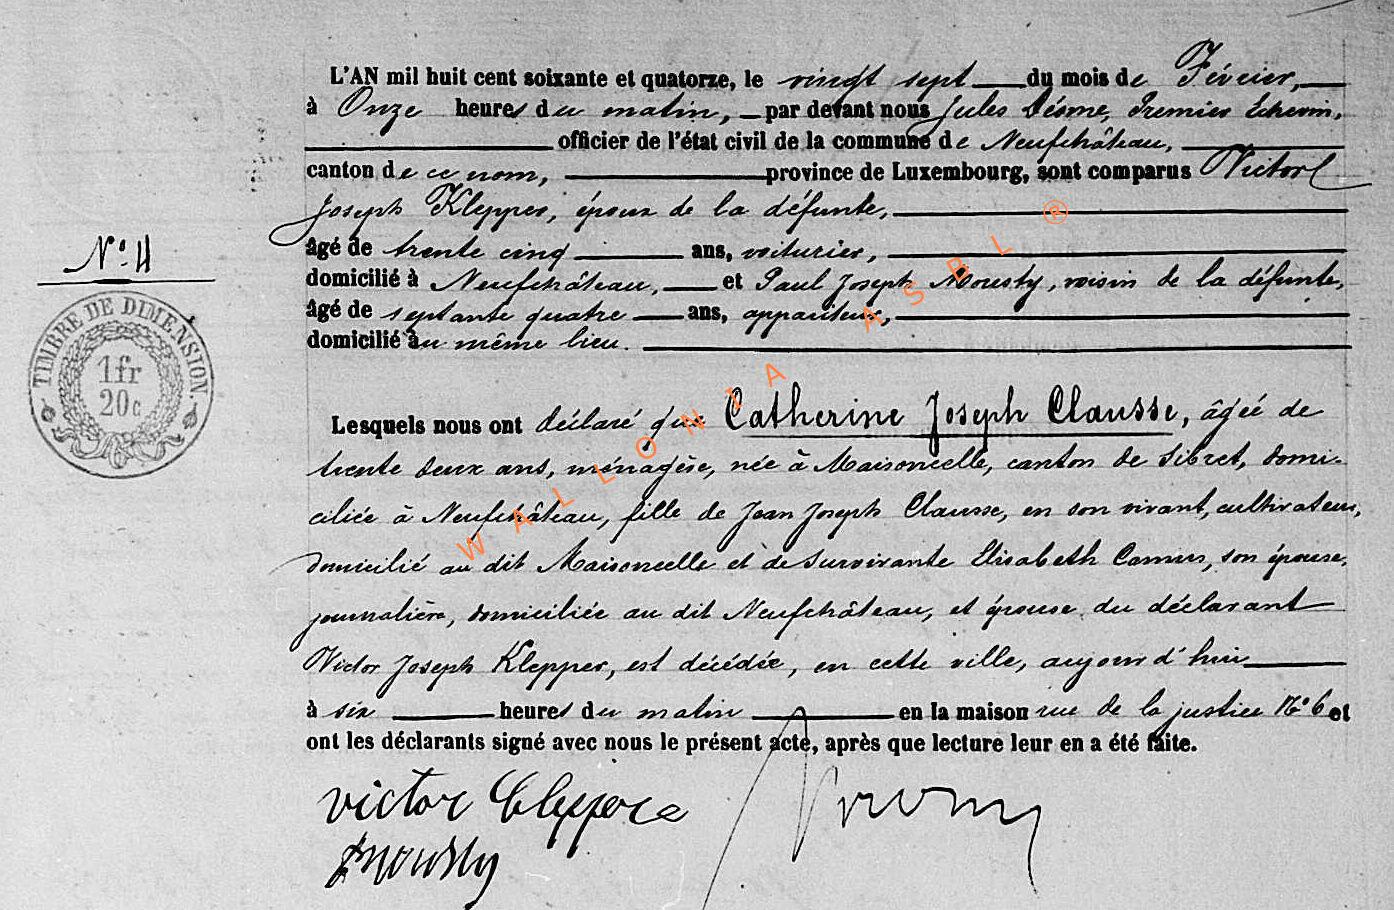 L'AN mil huit cent soixante et quatorze, le vingt sept du mois de Février,
à Onze heures du matin, par devant nous Jules Premier Echevin,
officier de l'état civil de la commune de Neufchâteau,
canton de ce nom, province de Luxembourg, sont comparus Victor
Joseph Klepper, époux de la défunte,
âgé de trente cinq ans, voiturier,
domicilié à Neufchâteau, et Paul Joseph Mousty, voisin de la défunte,
âgé de septante quatre ans, appariteur,
domicilié au même lieu.
N° 4
TIMBRE DE DIMENSION.
1fr
20c
Lesquels nous ont déclaré que Catherine Joseph Clausse, âgée de
trente deux ans, ménagère, née à Maisoncelle, canton de Sibret, domi-
ciliée à Neufchâteau, fille de Jean Joseph Clausse, en son vivant, cultivateur,
domicilié au dit Maisoncelle et de Survivante Elisabeth son épouse,
journalière, domiciliée au dit Neufchâteau, et épouse du déclarant
Victor Joseph Klepper, est décédée, en cette ville, aujourd'hui
à six heures du matin en la maison rue de la justice N° 6 et
ont les déclarants signé avec nous le présent acte, après que lecture leur en a été faite.
victor
Mousty
WALLONIA ASBL ®